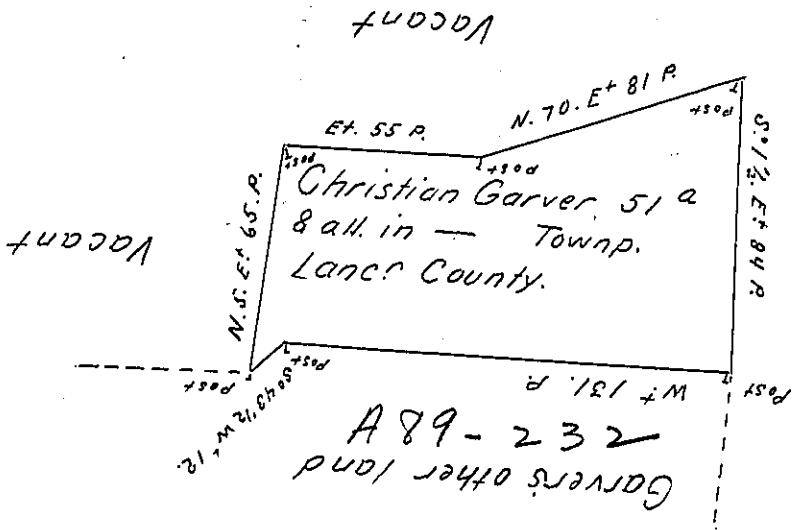 Vacant
N. 70. Et 81 P.
Et. 55 P.
Post
Post
Post
S° 1½. Et 84 P.
Christian Garver. 51 a
& all. in — Townp.
Lancr County.
N. 5. Et 65. P.
Vacant
Post
Post
S° 43½ Wt 12.
Wt 131. P.
Post
A 89 - 232
Garver's other land